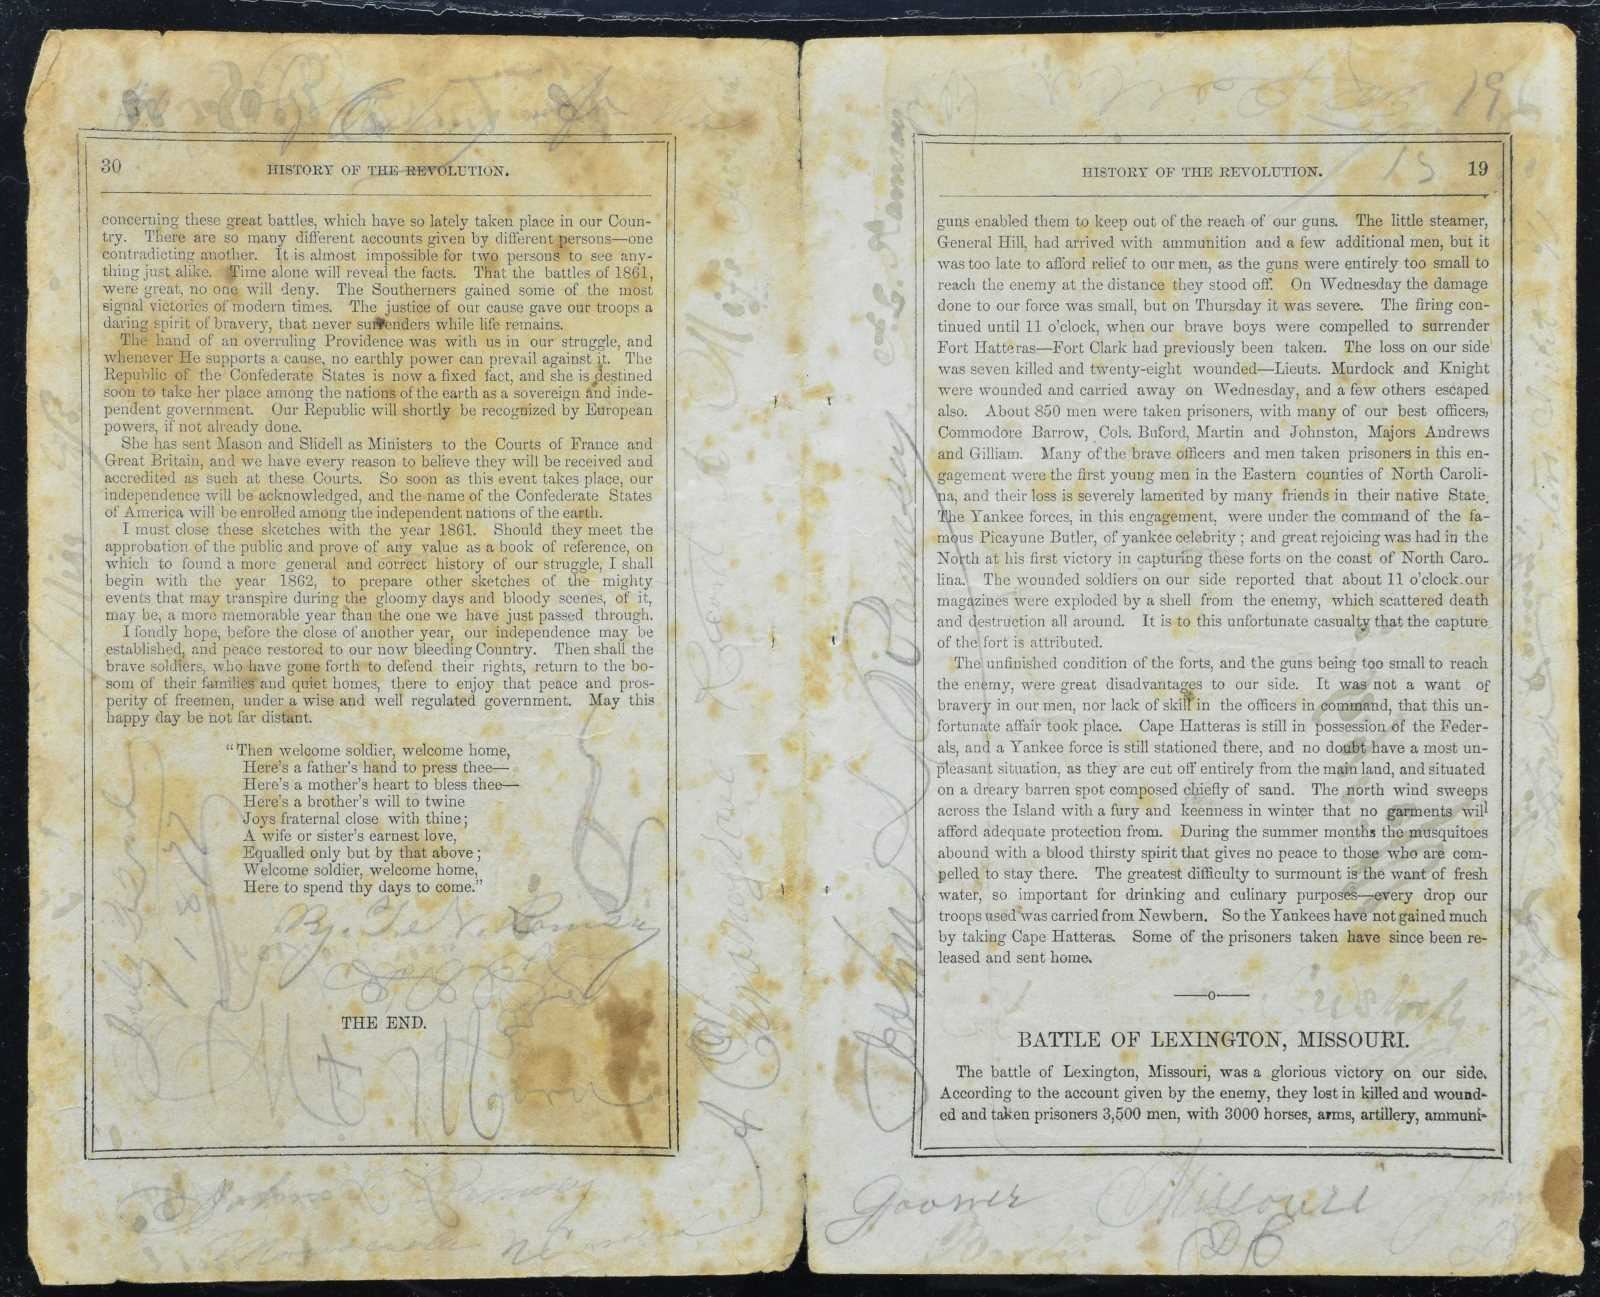 30
HISTORY OF THE REVOLUTION.
concerning these great battles, which have so lately taken place in our Coun-
try. There are so many different accounts given by different persons—one
contradicting another. It is almost impossible for two persons to see any-
thing just alike. Time alone will reveal the facts. That the battles of 1861,
were great, no one will deny. The Southerners gained some of the most
signal victories of modern times. The justice of our cause gave our troops a
daring spirit of bravery, that never surrenders while life remains.
The hand of an overruling Providence was with us in our struggle, and
whenever He supports a cause, no earthly power can prevail against it. The
Republic of the Confederate States is now a fixed fact, and she is destined
soon to take her place among the nations of the earth as a sovereign and inde-
pendent government. Our Republic will shortly be recognized by European
powers, if not already done.
She has sent Mason and Slidell as Ministers to the Courts of France and
Great Britain, and we have every reason to believe they will be received and
accredited as such at these Courts. So soon as this event takes place, our
independence will be acknowledged, and the name of the Confederate States
of America will be enrolled among the independent nations of the earth.
I must close these sketches with the year 1861. Should they meet the
approbation of the public and prove of any value as a book of reference, on
which to found a more general and correct history of our struggle, I shall
begin with the year 1862, to prepare other sketches of the mighty
events that may transpire during the gloomy days and bloody scenes, of it,
may be, a more memorable year than the one we have just passed through.
I fondly hope, before the close of another year, our independence may be
established, and peace restored to our now bleeding Country. Then shall the
brave soldiers, who have gone forth to defend their rights, return to the bo-
som of their families and quiet homes, there to enjoy that peace and pros-
perity of freemen, under a wise and well regulated government. May this
happy day be not far distant.
“Then welcome soldier, welcome home,
Here's a father's hand to press thee—
Here's a mother's heart to bless thee—
Here's a brother's will to twine
Joys fraternal close with thine;
A wife or sister's earnest love,
Equalled only but by that above;
Welcome soldier, welcome home,
Here to spend thy days to come.”
THE END.
July
1877
John Ramsey
HISTORY OF THE REVOLUTION.
19
15
guns enabled them to keep out of the reach of our guns. The little steamer,
General Hill, had arrived with ammunition and a few additional men, but it
was too late to afford relief to our men, as the guns were entirely too small to
reach the enemy at the distance they stood off. On Wednesday the damage
done to our force was small, but on Thursday it was severe. The firing con-
tinued until 11 o'clock, when our brave boys were compelled to surrender
Fort Hatteras—Fort Clark had previously been taken. The loss on our side
was seven killed and twenty-eight wounded—Lieuts. Murdock and Knight
were wounded and carried away on Wednesday, and a few others escaped
also. About 850 men were taken prisoners, with many of our best officers,
Commodore Barrow, Cols. Buford, Martin and Johnston, Majors Andrews
and Gilliam. Many of the brave officers and men taken prisoners in this en-
gagement were the first young men in the Eastern counties of North Caroli-
na, and their loss is severely lamented by many friends in their native State.
The Yankee forces, in this engagement, were under the command of the fa-
mous Picayune Butler, of yankee celebrity; and great rejoicing was had in the
North at his first victory in capturing these forts on the coast of North Caro-
lina. The wounded soldiers on our side reported that about 11 o'clock our
magazines were exploded by a shell from the enemy, which scattered death
and destruction all around. It is to this unfortunate casualty that the capture
of the fort is attributed.
The unfinished condition of the forts, and the guns being too small to reach
the enemy, were great disadvantages to our side. It was not a want of
bravery in our men, nor lack of skill in the officers in command, that this un-
fortunate affair took place. Cape Hatteras is still in possession of the Feder-
als, and a Yankee force is still stationed there, and no doubt have a most un-
pleasant situation, as they are cut off entirely from the main land, and situated
on a dreary barren spot composed chiefly of sand. The north wind sweeps
across the Island with a fury and keenness in winter that no garments will
afford adequate protection from. During the summer months the musquitoes
abound with a blood thirsty spirit that gives no peace to those who are com-
pelled to stay there. The greatest difficulty to surmount is the want of fresh
water, so important for drinking and culinary purposes—every drop our
troops used was carried from Newbern. So the Yankees have not gained much
by taking Cape Hatteras. Some of the prisoners taken have since been re-
leased and sent home.
—o—
BATTLE OF LEXINGTON, MISSOURI.
The battle of Lexington, Missouri, was a glorious victory on our side.
According to the account given by the enemy, they lost in killed and wound-
ed and taken prisoners 3,500 men, with 3000 horses, arms, artillery, ammuni-
Missouri